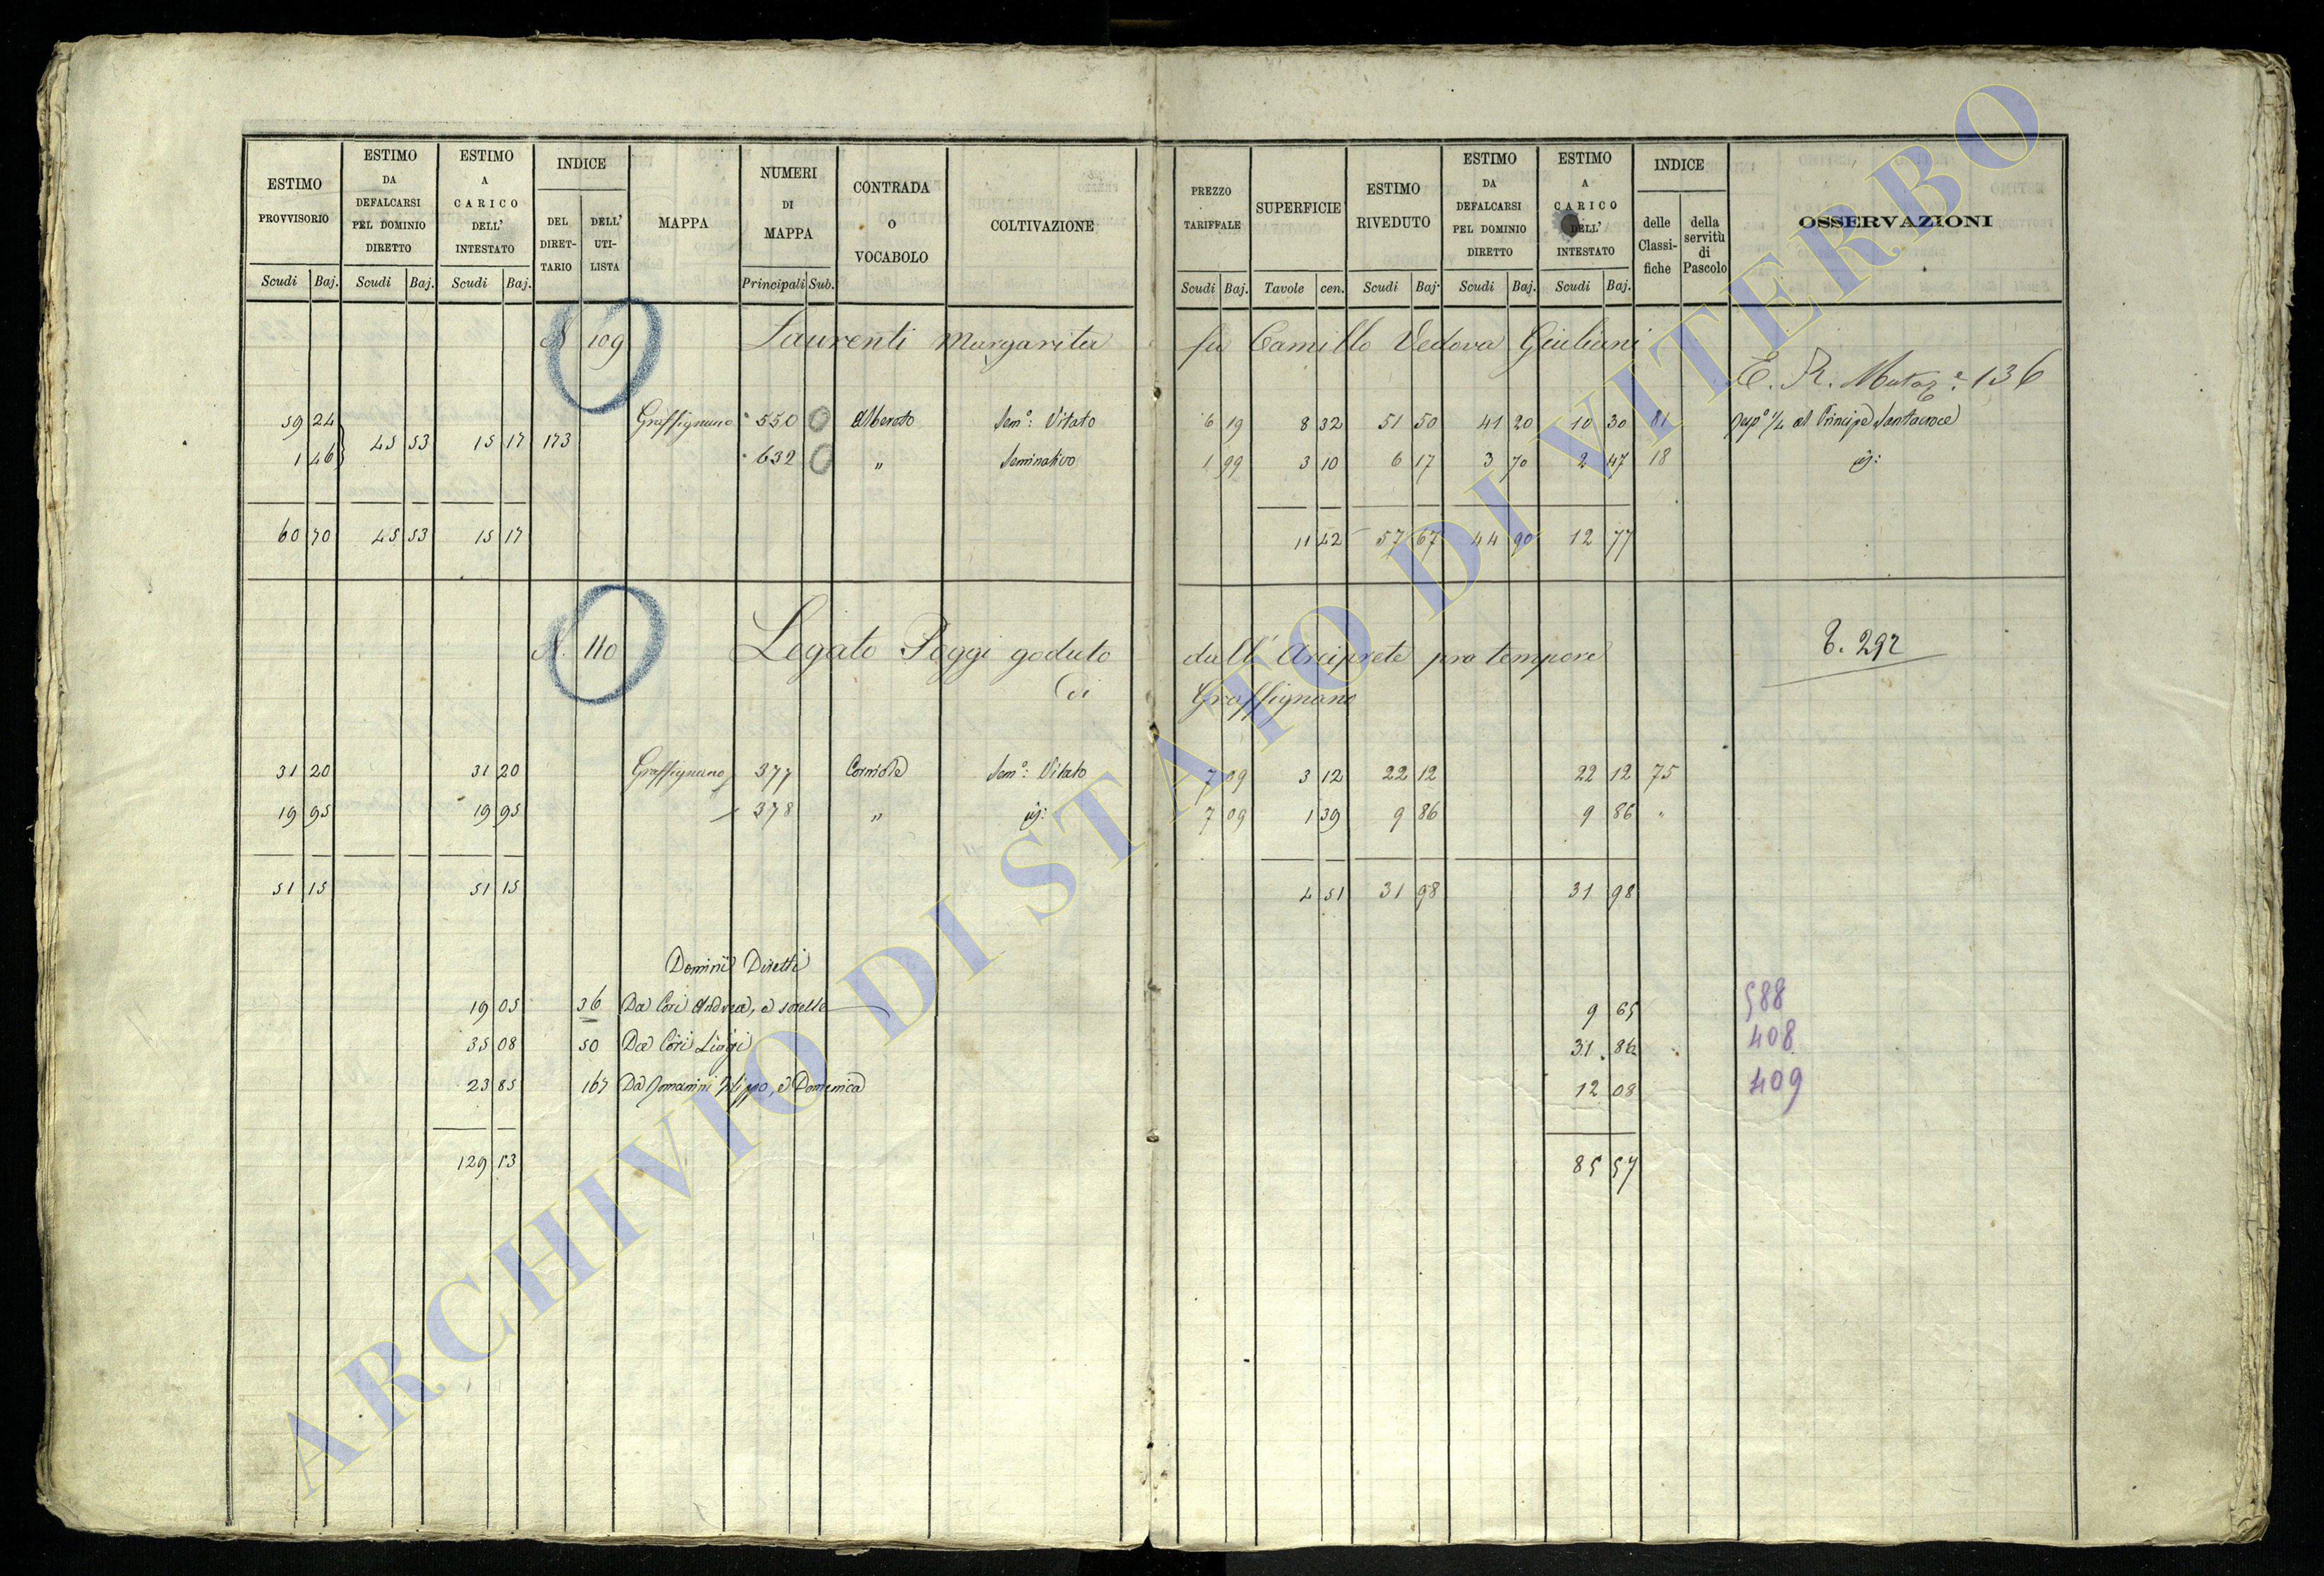 ESTIMO PROVVISORIO | ESTIMO DA DEFALCARSI PEL DOMINIO DIRETTO | ESTIMO A CARICO DELL' INTESTATO | INDICE | MAPPA | NUMERI DI MAPPA | CONTRADA O VOCABOLO | COLTIVAZIONE | PREZZO TARIFFALE | SUPERFICIE | ESTIMO RIVEDUTO | ESTIMO DA DEFALCARSI PEL DOMINIO DIRETTO | ESTIMO A CARICO DELL' INTESTATO | INDICE | OSSERVAZIONI
DEL DIRET-TARIO | DELL' UTI-LISTA | delle Classi-fiche | della servitù di Pascolo
Scudi | Baj. | Scudi | Baj. | Scudi | Baj. | Principali | Sub. | Scudi | Baj. | Tavole | cen. | Scudi | Baj. | Scudi | Baj. | Scudi | Baj.
N. 109 Laurenti Margarita fu Camillo Vedova Giuliani
E. R. Mutaz.e 136
59 24 | 45 53 | 15 17 | 173 | Graffignano | 550 | Alberato | Sem.o Vitato | 6 19 | 8 32 | 51 50 | 41 20 | 10 30 | 81 | al Principe Santacroce
1 46 | 632 | " | Seminativo | 1 99 | 3 10 | 6 17 | 3 70 | 2 47 | 18 | id:
60 70 | 45 53 | 15 17 | 11 42 | 57 67 | 44 90 | 12 77
N. 110 Legato Poggi goduto dall' Arciprete pro tempore
di Graffignano
292
31 20 | 31 20 | Graffignano | 377 | Sem.o Vitato | 7 09 | 3 12 | 22 12 | 22 12 | 75
19 95 | 19 95 | 378 | " | id: | 7 09 | 1 39 | 9 86 | 9 86 | "
51 15 | 51 15 | 4 51 | 31 98 | 31 98
Dominî Diretti
19 05 | 36 | Da Cori Andrea, e sorelle | 9 65 | 588
35 08 | 50 | Da Cori Luigi | 31 86 | 408
23 85 | 167 | Da Filippo, e Domenica | 12 08 | 409
129 13 | 85 57
ARCHIVIO DI STATO DI VITERBO